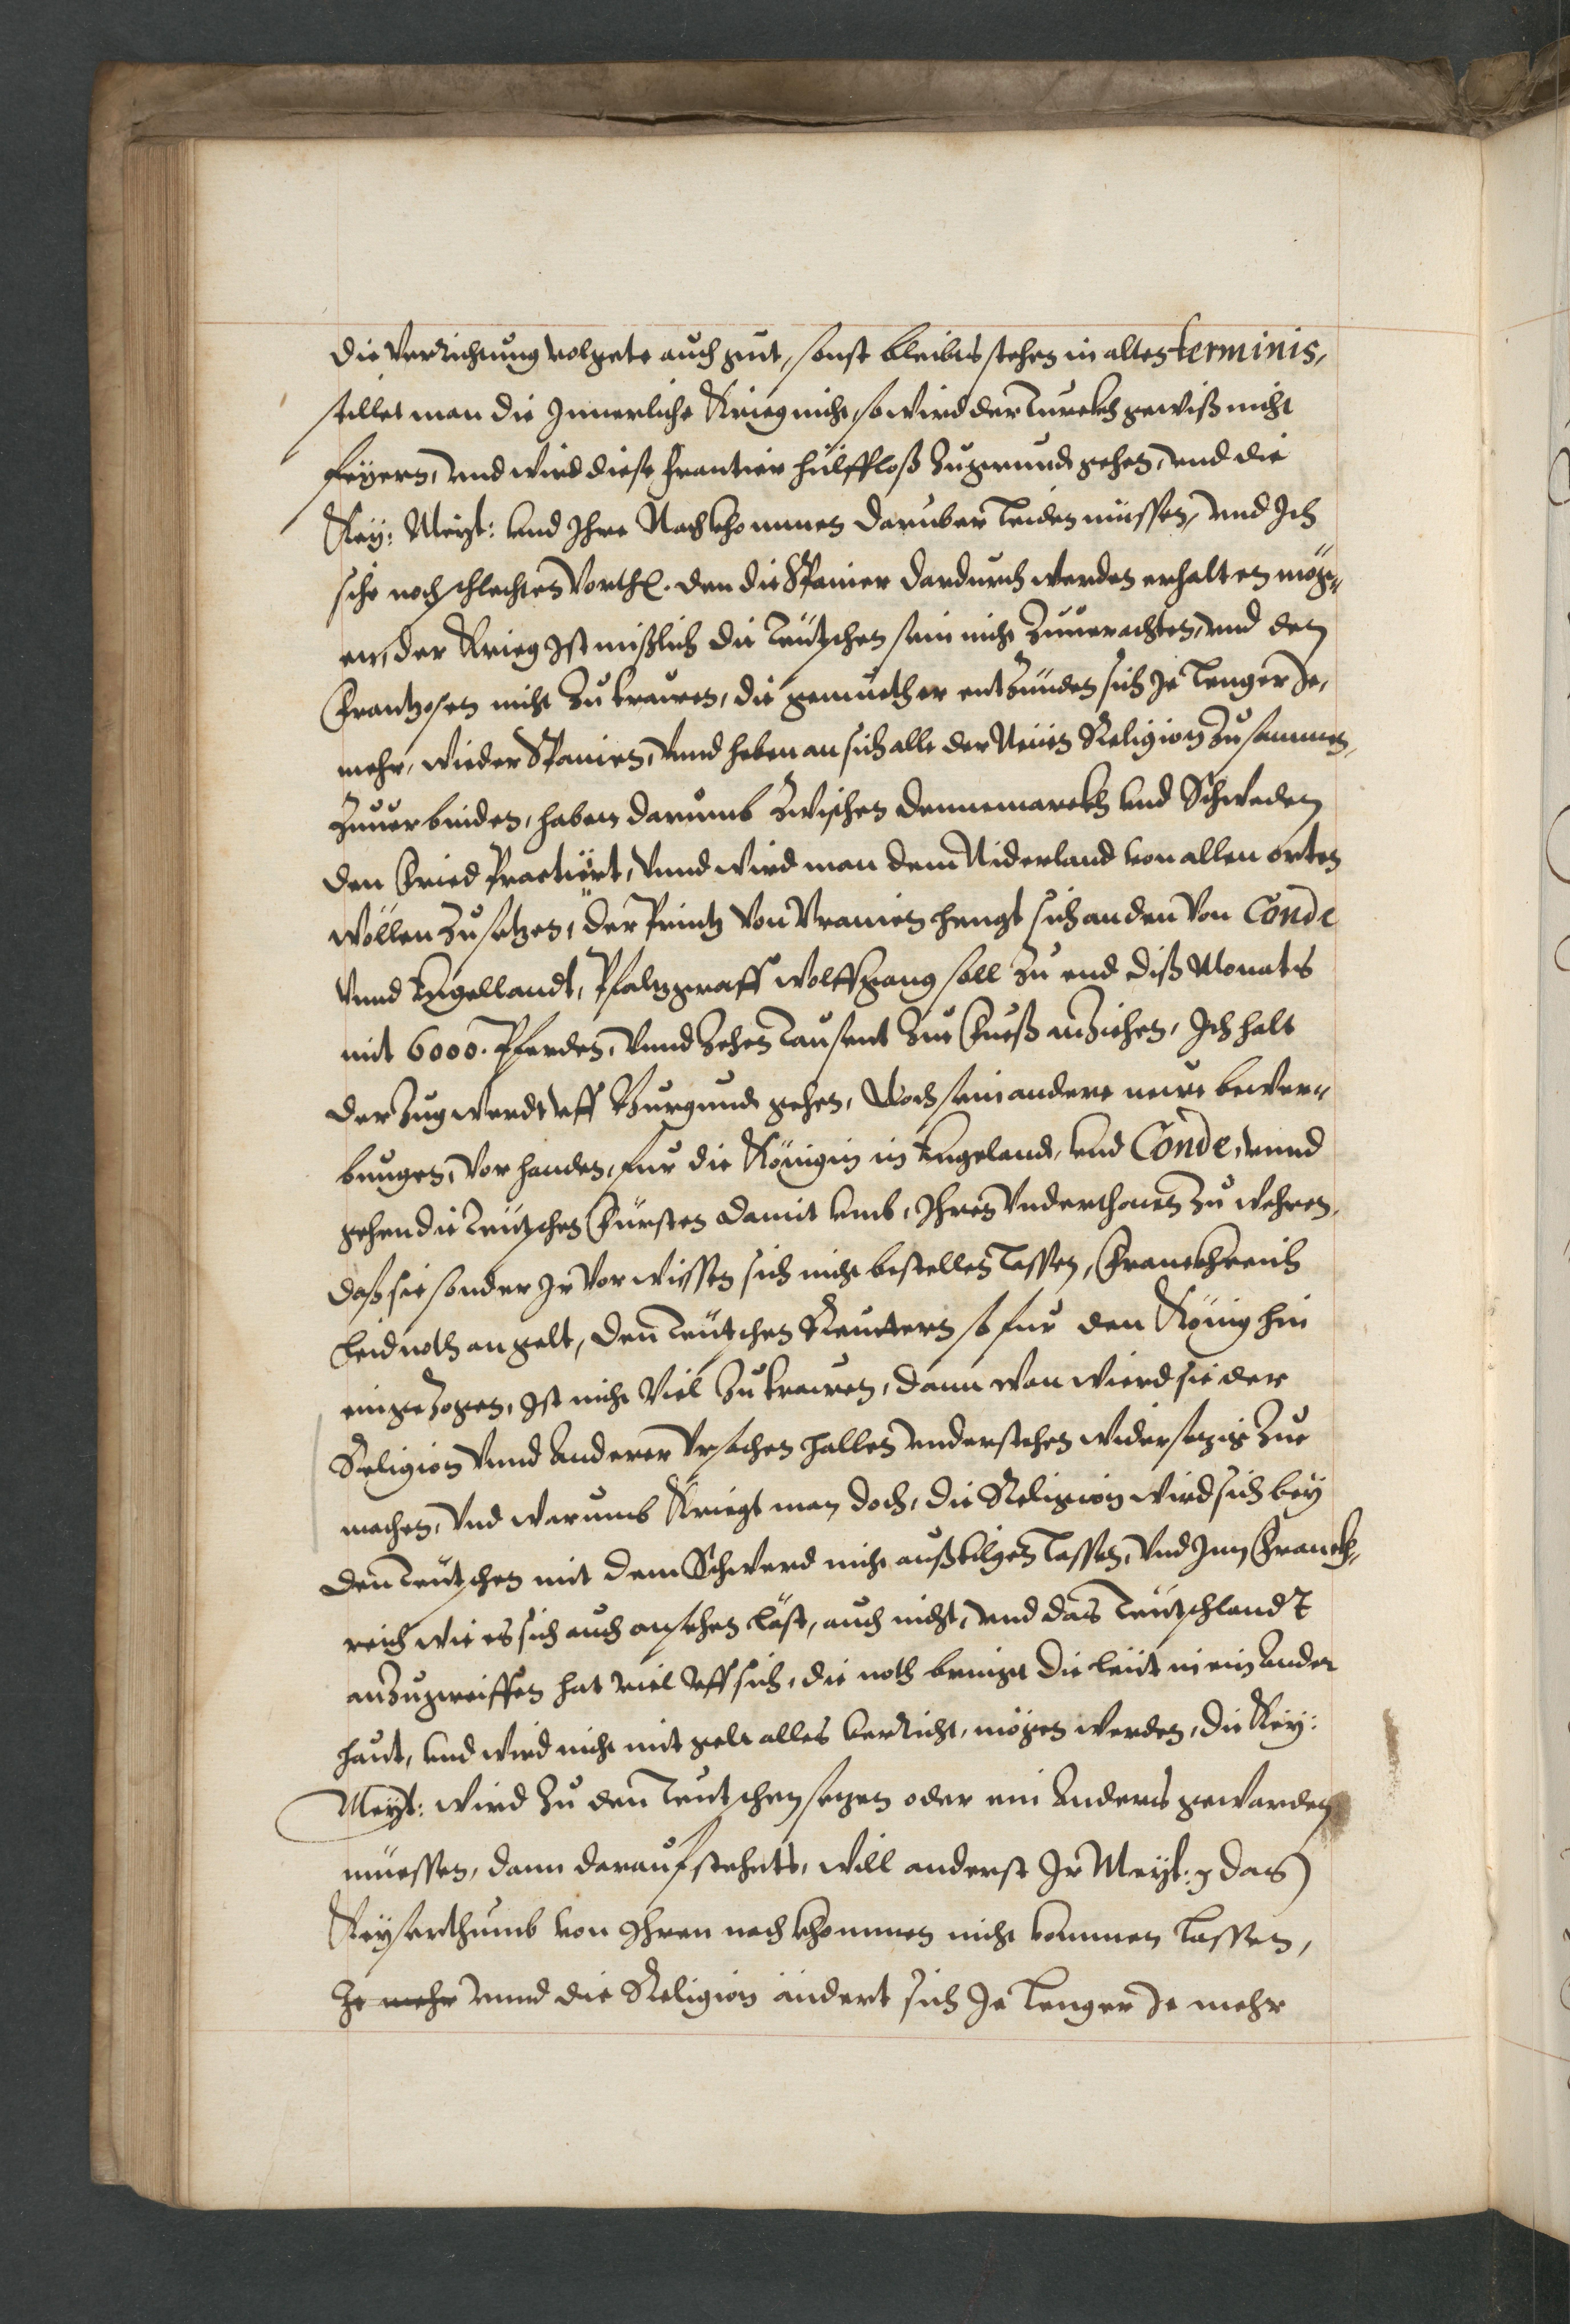 die verrichtung volgete auch gut, sonst bleibts stehen in alten terminis,
stillet man die Innerliche Krieg nicht, so wird der Turckh gewiß nicht
feyern, vnd wird diese frantier hülffloß zugrund gehen, vnd die
Key: Meyt: vnd Ihre Nachkhommen daruber leiden müssen, vnd Ich
sihe noch schlechten Vorthl. den die Spanier dardurch werden erhalten mög„
en, der Krieg Ist mißlich die Teütschen sein nicht zuuerachten, vnd den
Frantzosen nicht zu trawen, die gemüether entzünden sich Je lenger Je,
mehr, wieder Spanien, vnnd heben an sich alle der Neüen Religion zusammen
zuuerbinden, haben darumb zwischen Dennemarckh vnd Schweden
den Fried Practiirt, vnnd wird man dem Niderland von allen orten
wöllen zusetzen, der Printz von Vranien hengt sich an den von Conde
vnnd Engellandt, Pfaltzgraff Wolffgang soll zu end diß Monats
mit 6000. Pferden, vnnd zehen Tausent zue Fueß anziehen, Ich halt
der zug werdt vff Burgund gehen, Noch sein andere newe bewer„
bungen, vorhanden, fur die Königin in Engeland, vnd Conde, vnnd
gehen die Teütschen Fürsten damit vmb, Ihren Vnderthonen zu wehren,
daß sie sonder Ir vorwissen sich nicht bestellen lassen, Franckhreich
leid noth an gelt, den Teütschen Reuttern so fur den König hin
eingezogen, Ist nicht viel zu trawen, dann man wierd sie der
Religion vnnd anderer Vrsachen halben vnderstehen widersetzig zue
machen, vnd warumb Kriegt man doch, die Religion wird sich bey
den Teütschen mit dem Schwerd nicht außtilgen lassen, vnd Inn Franckh„
reich wie es sich auch ansehen läst, auch nicht, vnd das Teütschlandt
anzugreiffen hat viel vff sich, die noth bringt die leüt in ein ander
haut, vnd wird nicht mit gelt alles verricht, mögen werden, die Key:
Meyt: wird zu den Teutschen setzen oder ein anders gewarden
müessen, dann darauf stehets, will anderst Ir Meyt: das
Keyserthumb von Ihren nachkhommen nicht kommen lassen,
Je mehr vnnd die Religion ändert sich Je lenger Je mehr